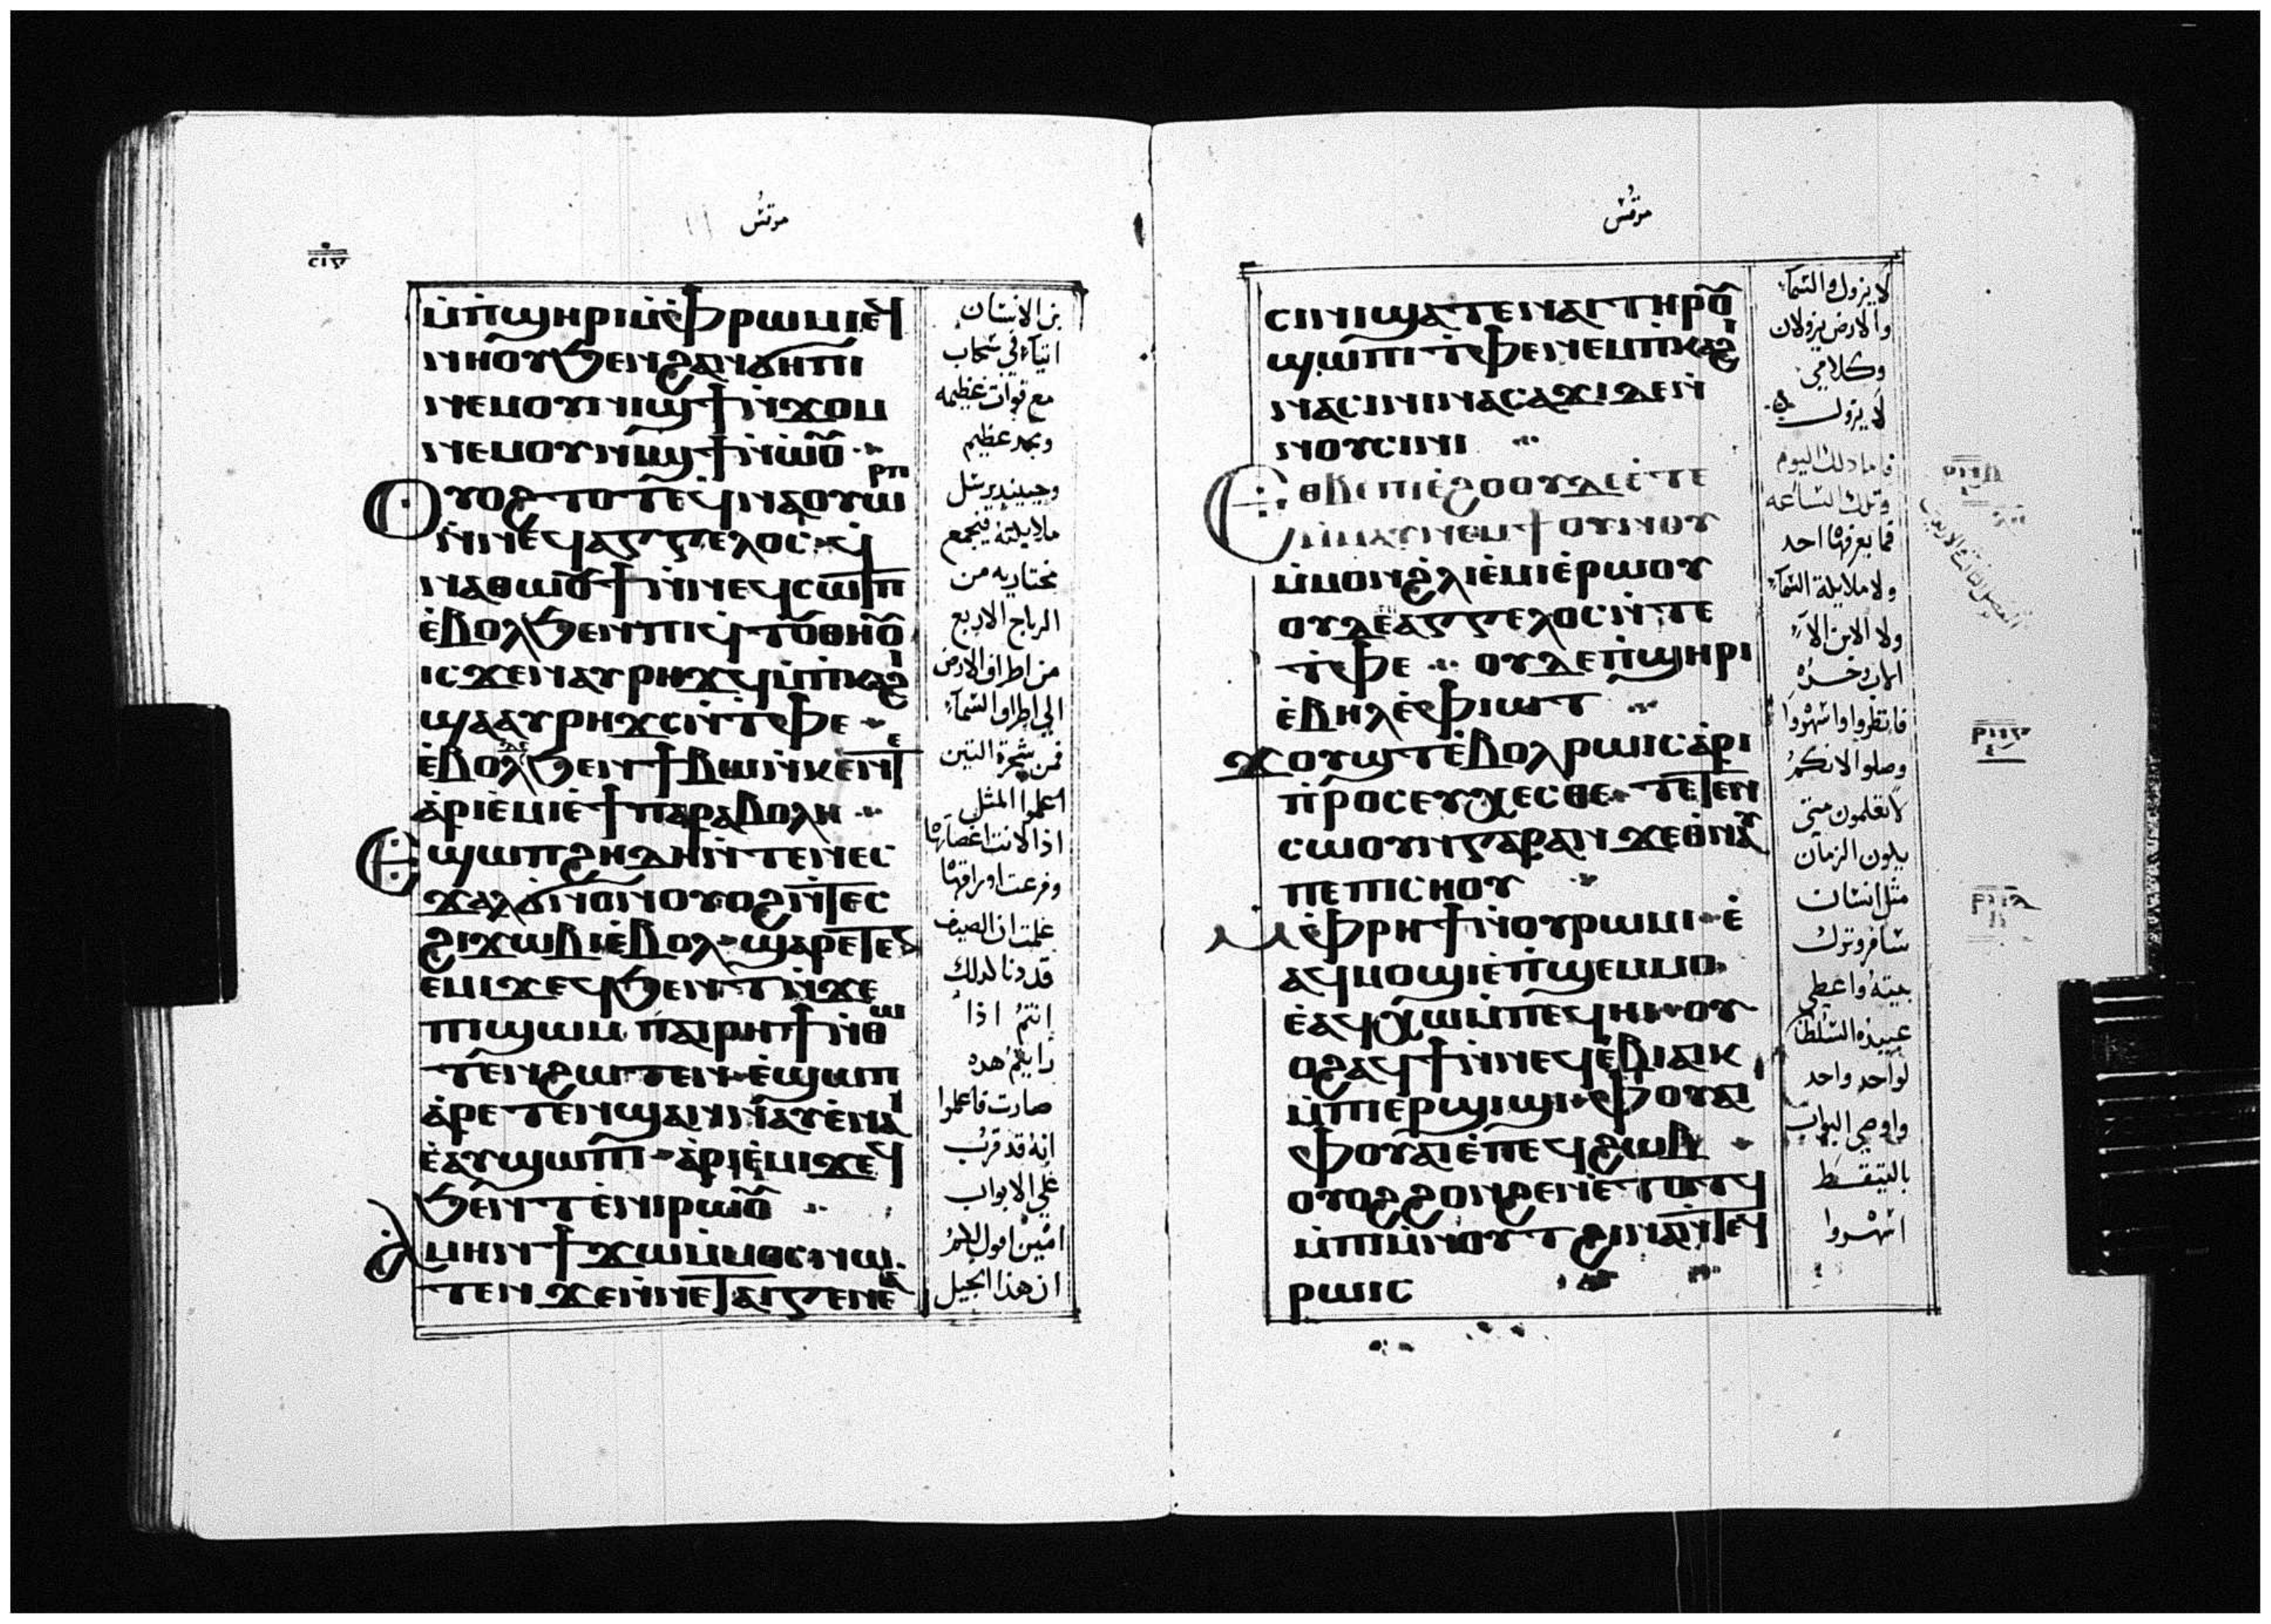 مرقس
ⲥⲓⲋ
ⲙ̇ⲡ̇ϣⲏⲣⲓⲙ̇ⲫ̇ⲣⲱⲙⲓⲉϥ
ⲛⲏⲟⲩϧⲉⲛϩⲁⲛϭⲏⲡⲓ
ⲛⲉⲙⲟⲩⲛⲓϣϯⲛ̇ϫⲟⲙ
ⲛⲉⲙⲟⲩⲛⲓϣϯⲛ̇ⲱ̇ⲟⲩ
ⲟⲩⲟϩⲧⲟⲧⲉϥⲛⲁⲟⲩⲱⲣⲡ
ⲛ̇ⲛⲉϥⲁⲅⲅⲉⲗⲟⲥ ϥ
ⲛⲁⲑⲱⲟⲩϯⲛ̇ⲛⲉϥⲥⲱⲧⲡ
ⲉ̇ⲃⲟⲗϧⲉⲛⲡⲓϥⲧⲟⲩⲑⲏⲟⲩ
ⲓⲥϫⲉⲛⲁⲩⲣⲏϫϥⲙ̇ⲡ̇ⲕⲁϩⲓ
ϣⲁⲁⲩⲣⲏϫⲥⲛ̇ⲧ̇ⲫⲉ
ⲉ̇ⲃⲟⲗϧⲉⲛϯⲃⲱⲛ̇ⲕⲉⲛⲧⲉ
ⲁ̇ⲣⲓⲉ̇ⲙⲓⲉ̇ϯⲡⲁⲣⲁⲃⲟⲗⲏ
ⲉϣⲱⲡϩⲏⲇⲏⲛ̇ⲧⲉⲛⲉⲥ
ϫⲁⲗϭⲛⲟⲛⲟⲩⲟϩⲛ̇ⲧⲉⲥ
ϩⲓϫⲱⲃⲓⲉ̇ⲃⲟⲗ ϣⲁⲣⲉⲧⲉⲛ
ⲉⲙⲓϫⲉϥϧⲉⲛⲧⲛ̇ϫⲉ
ⲡⲓϣⲱⲙ ⲡⲁⲓⲣⲏϯⲛ̇ⲑⲱ
ⲧⲉⲛϩⲱⲧⲉⲛ ⲉ̇ϣⲱⲡ
ⲁ̇ⲣⲉⲧⲉⲛϣⲁⲛⲛⲁⲩⲉ̇ⲛⲁⲓ
ⲉ̇ⲁⲩϣⲱⲡⲓ ⲁ̇ⲣⲓⲉ̇ⲙⲓϫⲉϥ
ϧⲉⲛⲧ ⲉ̇ⲛⲓⲣⲱⲟⲩ
ⲁⲙⲏⲛϯϫⲱⲙ̇ⲙⲟⲥⲛⲱ
ⲧⲉⲛ ϫⲉⲛ̇ⲛⲉⲧⲁⲓⲅⲉⲛⲉⲁ
بن الانسان
اتيا في سحاب
مع قوات عظيمه
وبمجد عظيم
وحينيد يرسل
ملايكته فيجمع
مختاريه من
الرياح الاربع
من اطراف الارض
الي اطراف السماء
فمن شجرة التين
اعلموا المثل
اذا لانت اغصانها
وفرعت اوراقها
علمتم ان الصيف
قد دنا كدلك
انتم اذا
رايتم هده
صارت فاعلموا
انه قد قرب
علي الابواب
امين اقول لكم
ان هذا الجيل
مرقس
ⲥⲓⲛⲓϣⲁⲧⲉⲛⲁⲓⲧⲏⲣⲟⲩ
ϣⲱⲡⲓ ⲧ̇ⲫⲉⲛⲉⲙⲡ̇ⲕⲁϩⲓ
ⲛⲁⲥⲓⲛⲓⲛⲁⲥⲁϫⲓⲇⲉⲛ̇
ⲛⲟⲩⲥⲓⲛⲓ
ⲉⲑⲃⲉⲡⲓⲉ̇ϩⲟⲟⲩⲇⲉⲉ̇ⲧⲉ
ⲙ̇ⲙⲁⲩⲛⲉⲙϯⲟⲩⲛⲟⲩ
ⲙ̇ⲙⲟⲛϩⲗⲓⲉ̇ⲙⲓⲉ̇ⲣⲱⲟⲩ
ⲟⲩⲇⲉⲁⲅⲅⲉⲗⲟⲥⲛ̇ⲧⲉ
ⲧ̇ⲫⲉ ⲟⲩⲇⲉⲡ̇ϣⲏⲣⲓ
ⲉ̇ⲃⲏⲗⲉ̇ⲫ̇ⲓⲱⲧ
ϫⲟⲩϣⲧⲉ̇ⲃⲟⲗⲣⲱⲓⲥⲁ̇ⲣⲓ
ⲡ̇ⲣⲟⲥⲉⲩⲭⲉⲥⲑⲉ ⲧⲉⲧⲉⲛ
ⲥⲱⲟⲩⲛⲅⲁⲣⲁⲛ ϫⲉⲑⲛⲁⲩ
ⲡⲉⲡⲓⲥⲏⲟⲩ
ⲙ̇ⲫ̇ⲣⲏϯⲛ̇ⲟⲩⲣⲱⲙⲓ ⲉ̇
ⲁϥⲙⲟϣⲓⲉ̇ⲡ̇ϣⲉⲙⲙⲟ
ⲉ̇ⲁϥⲭⲱⲙ̇ⲡⲉϥⲏⲓ ⲟⲩ
ⲟϩⲁϥϯⲛ̇ⲛⲉϥⲉ̇ⲃⲓⲁⲓⲕ
ⲙ̇ⲡⲓⲉⲣϣⲓϣⲓ ⲫ̇ⲟⲩⲁⲓ
ⲫ̇ⲟⲩⲁⲓⲉ̇ⲡⲉϥϩⲱⲃ
ⲟⲩⲟϩϩⲟⲛϩⲉⲛⲉ̇ⲧⲟⲧϥ
ⲙ̇ⲡⲓⲙ̇ⲛⲟⲩⲧϩⲓⲛⲁⲛ̇ⲧⲉϥ
ⲣⲱⲓⲥ
لا يزول والسماء
والارض يزولان
وكلامي
لا يزول
فاما دلك اليوم
وتلك الساعه
فما يعرفها احد
ولا ملايكة السماء
ولا الابن الا
الاب وحده
فانظروا واسهروا
وصلوا لانكم
لا تعلمون متي
يكون الزمان
مثل انسان
سافر وترك
بيته واعطي
عبيده السلطان
لواحد واحد
واوصي البواب
بالتيقظ
اسهروا